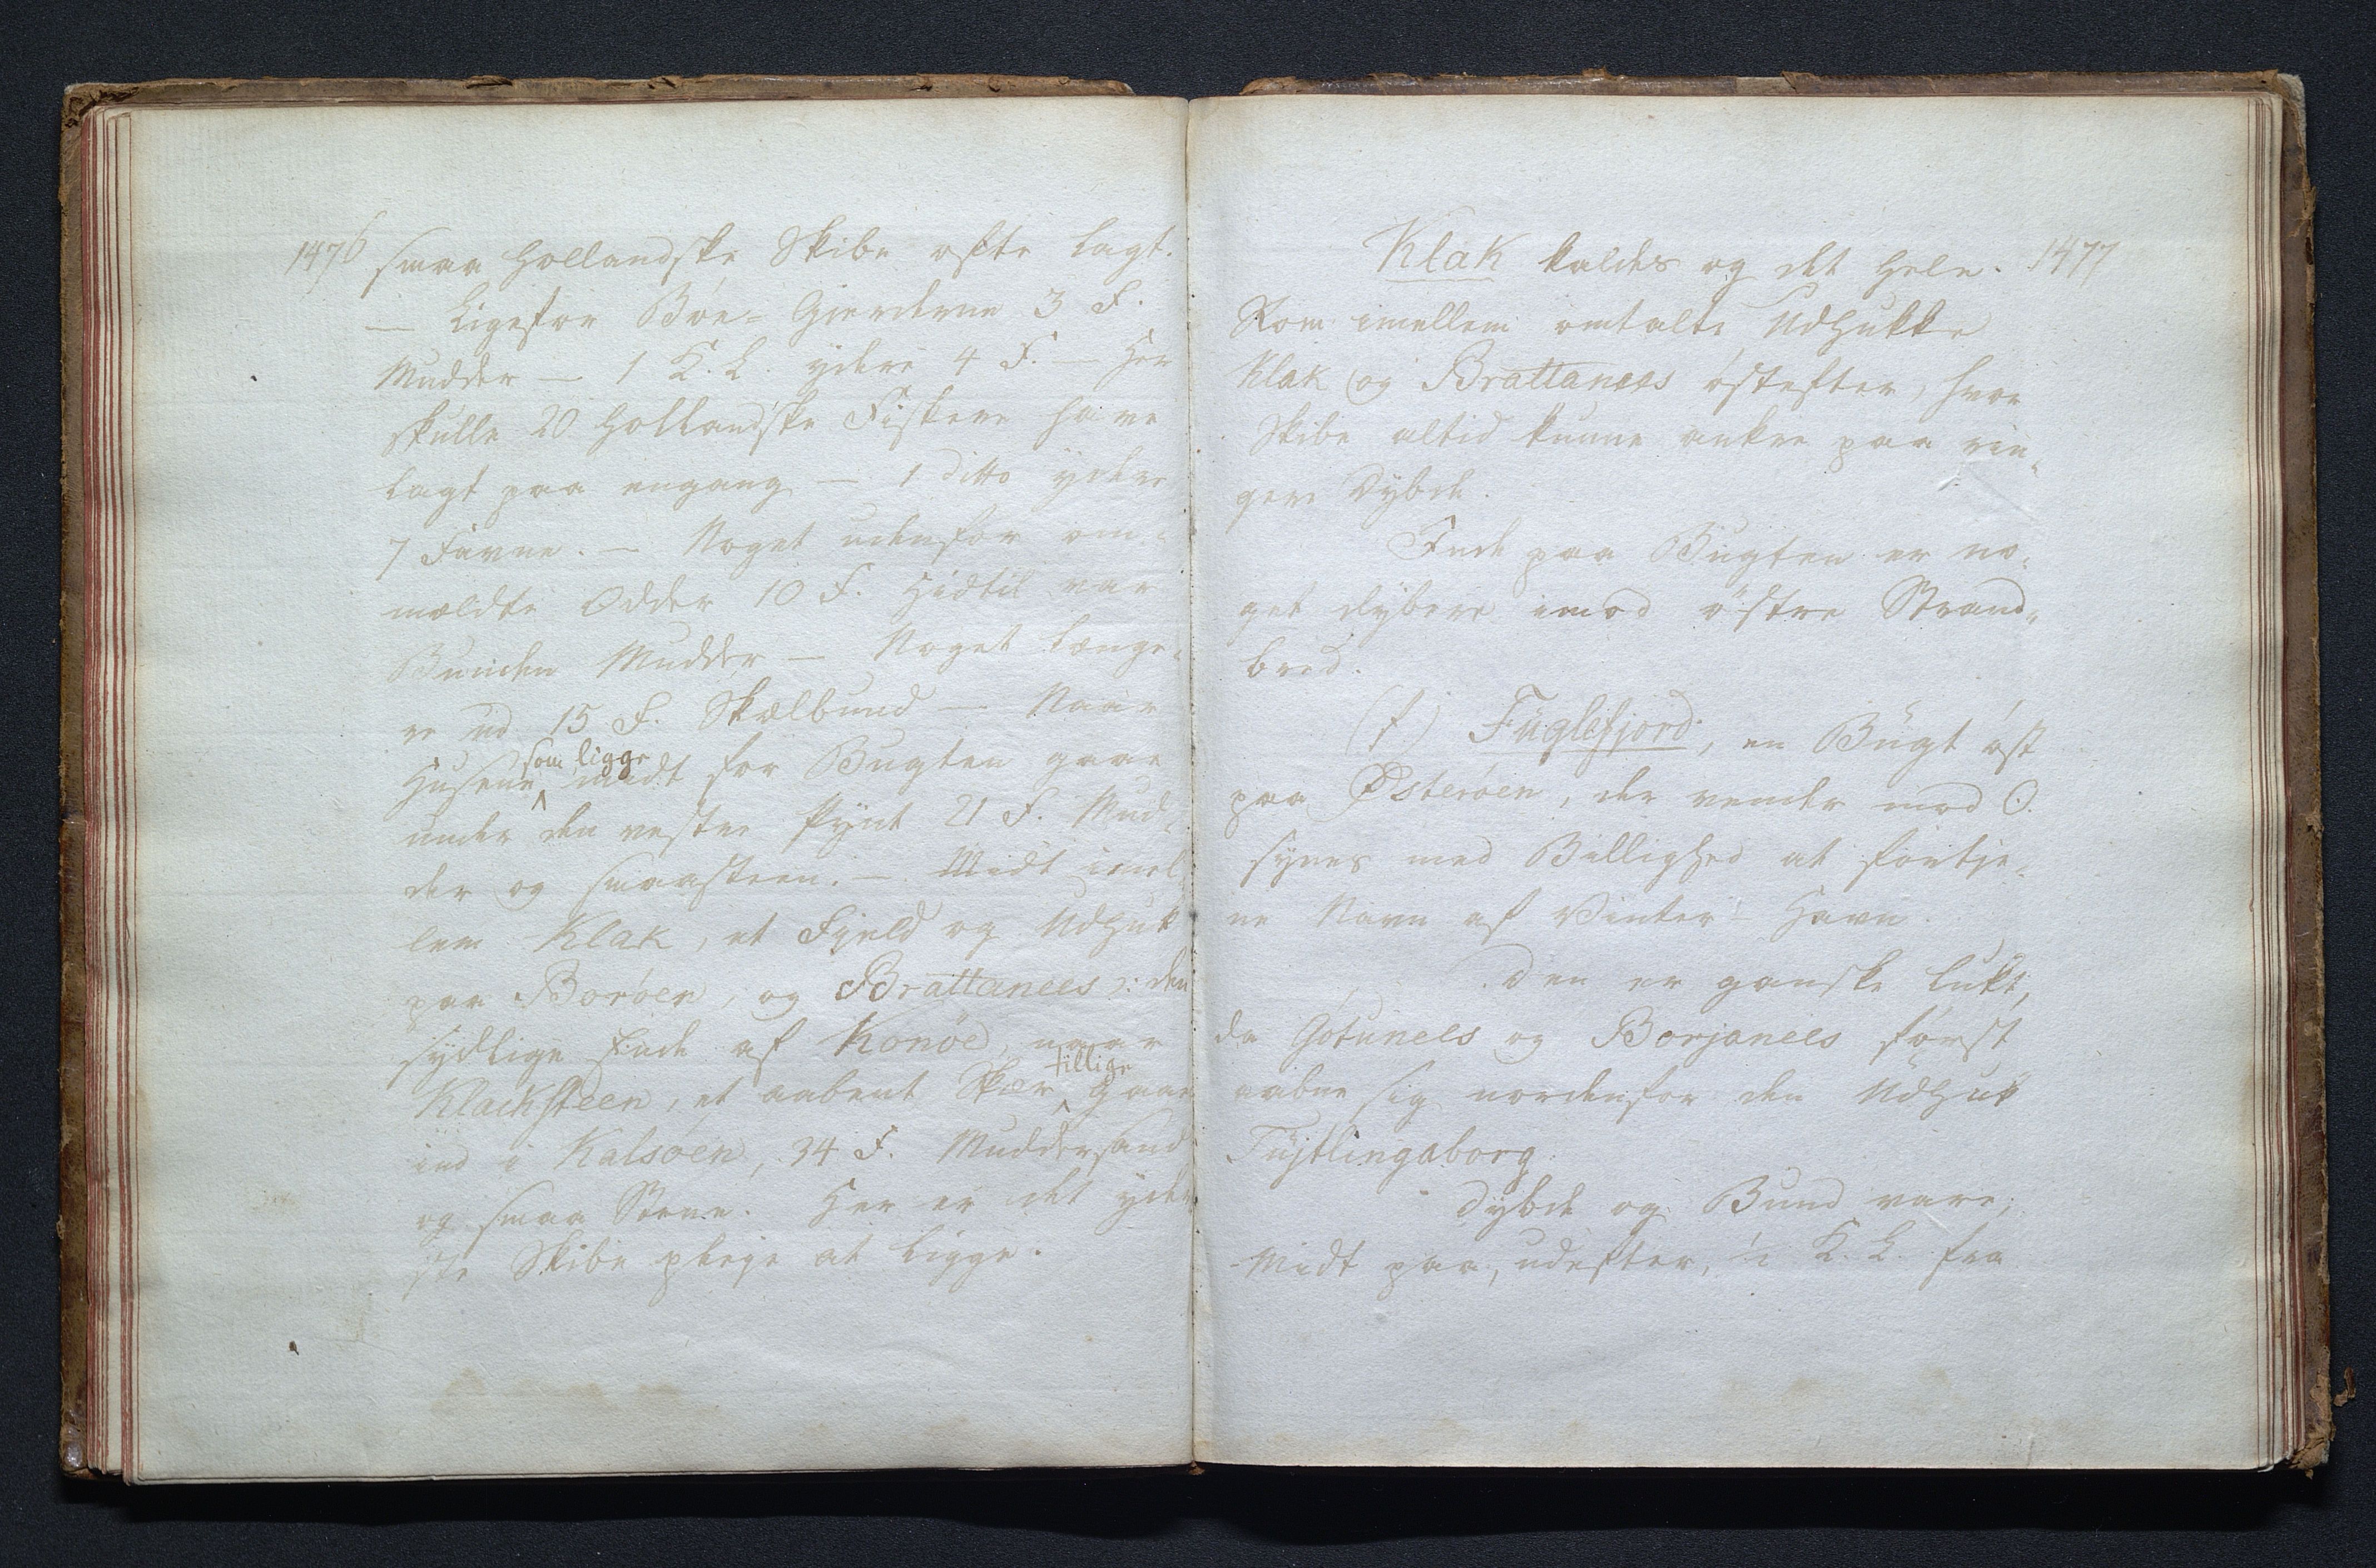 1476
smaa Hollandske Skibe ofte lagt.
— Ligefor Böe= Gierderne 3 F.
Mudder — 1 K. L. ydere 4 F. — Her
skulle 20 Hollandske Fiskere have
lagt paa engang — 1 ditto ydere
7 Favne. — Noget udenfor om-
mældte Odder 10 F. Hidtil var
Bunden Mudder — Noget længe-
re ud 15 F. Skælbund — Naar
som ligge
Husene midt for Bugten gaae
under den vestre Pynt 21 F. Mud-
der og smaasteen. — Midt imel
lem Klak, et Fjeld og Udhuk
paa Boröen, og Brattanees ɔ: den
sydlige Ende af Konöe, naar
tillige
Klacksteen, et aabent Skær gaae
ind i Kalsöen, 34 F. Muddersand
og smaa Steene. Her er det yder
ste Skibe pleje at ligge.
1477
Klak kaldes og det hele
Rom imellem omtalte Udhukke
Klak og Brattanees östefter, hvor
Skibe altid kunne ankre paa rin-
gere Dybde.
Inde paa Bugten er no-
get dybere imod östre Strand-
bred.
(f) Fuglefjord, en Bugt öst
paa Österöen, der vender mod O.
synes med Billighed at fortje-
ne Navn af Vinter= Havn.
Den er ganske lukt,
da Götunees og Borjanees först
aabne sig nordenfor den Udhuk
Tujtlingaborg
Dybde og Bund vare;
Midt paa, udefter, ½ K. L. fra